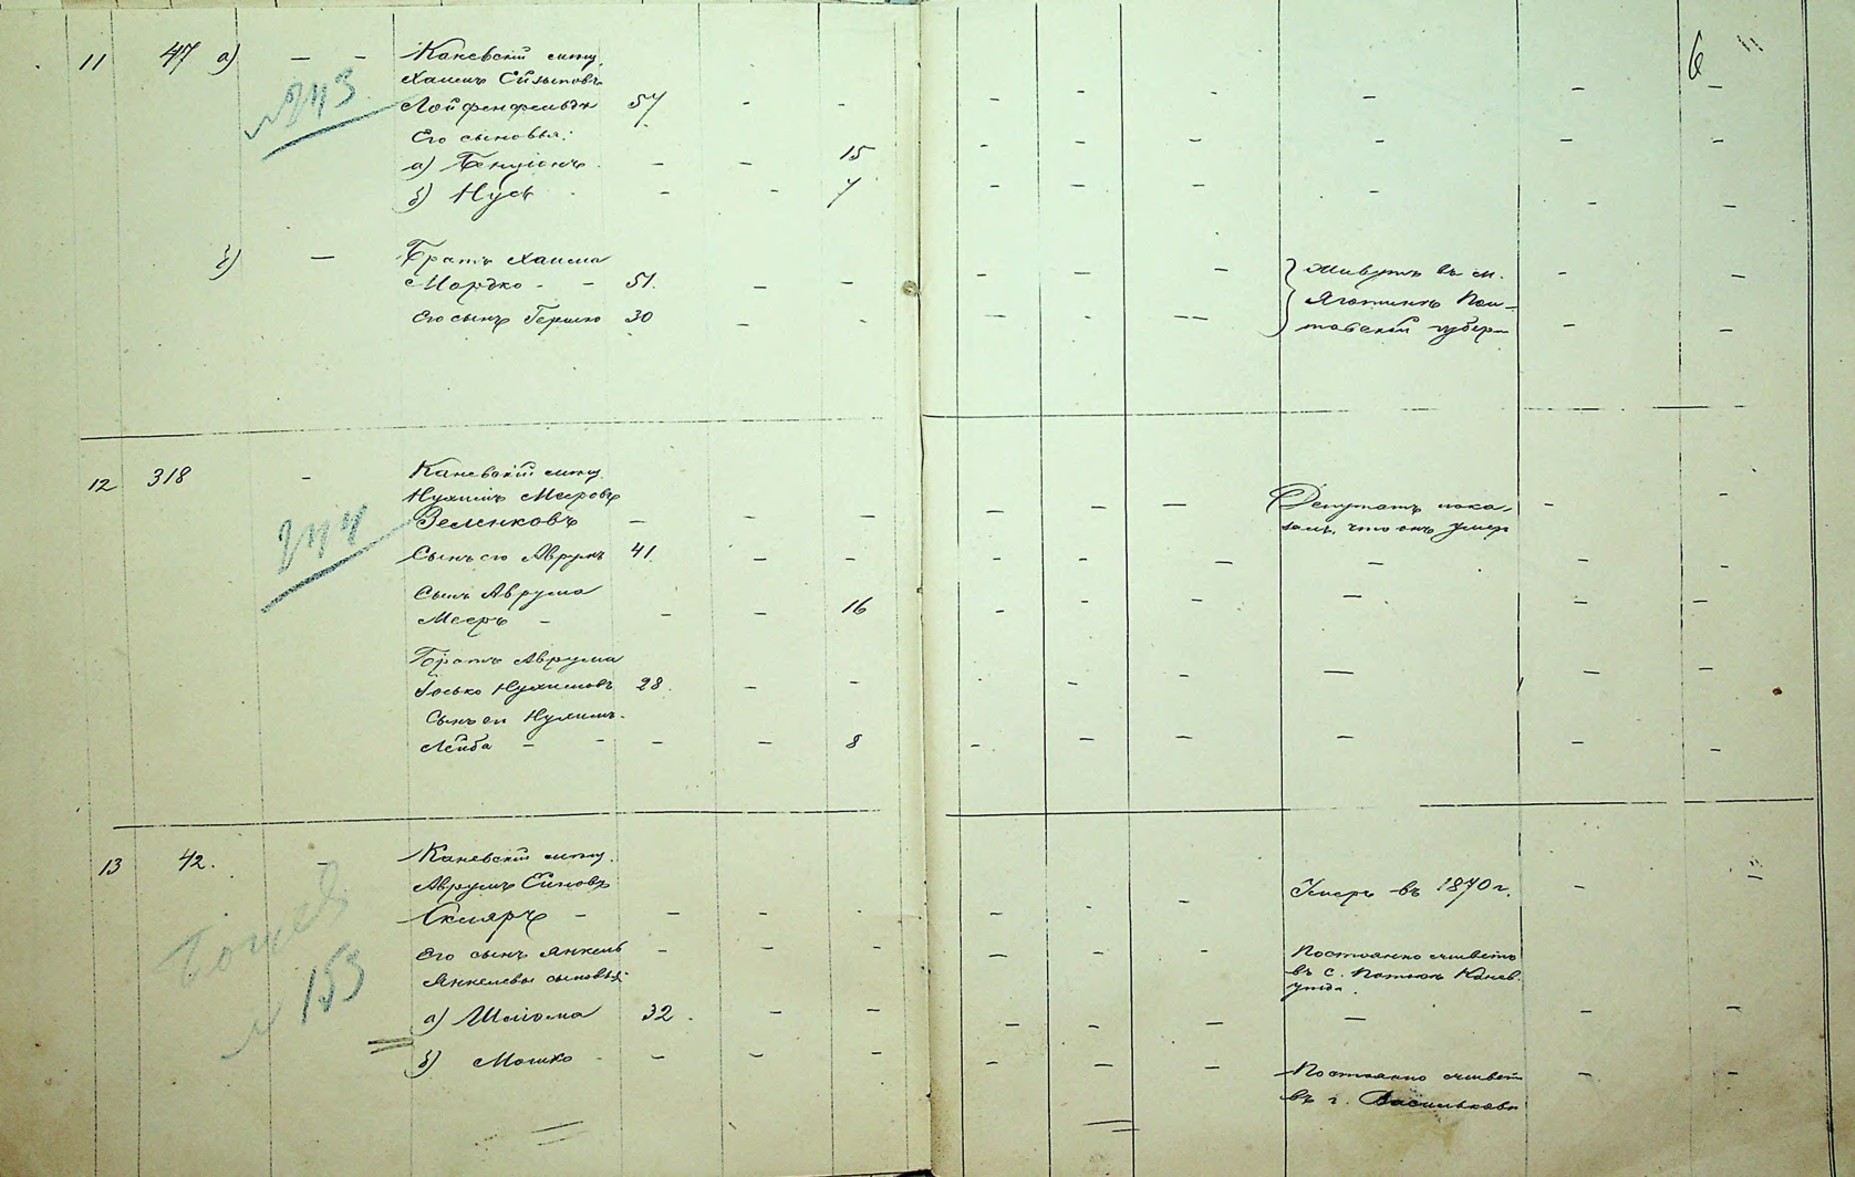 6
11 47 а) — — Каневскій мѣщ.
Хаимъ Сизыповъ
Лойфенфельдъ 57 - -
№ 113
Его сыновья:
а) Бенціонъ — — 15
б) Нусъ - - 7
б) — Братъ Хаима
Мордко - - 51. — —
Его сынъ Гершко 30 —
Живутъ въ м.
Яготинѣ Пол-
тавской губер.
12 318 - Каневскій мѣщ.
Нухимъ Мееровъ
Зеленковъ — — —
Сынъ его Аврумъ 41. — —
Сынъ Аврума
Мееръ - - — 16
Братъ Аврума
Иосько Нухимовъ 28. — -
Сынъ его Нухимъ-
Лейба - - — — 8
Депутатъ пока-
залъ, что онъ умеръ
13 42. - Каневскій мѣщ.
Аврумъ
Скляръ - — -
Его сынъ Янкель - - -
Янкелевы сыновья:
а) Шліома 32. — —
б) Мошко - — — —
№ 153
Умеръ въ 1870 г.
Постоянно живетъ
въ с. Потокѣ Канев.
уѣзда.
Постоянно живетъ
въ г. Васильковѣ